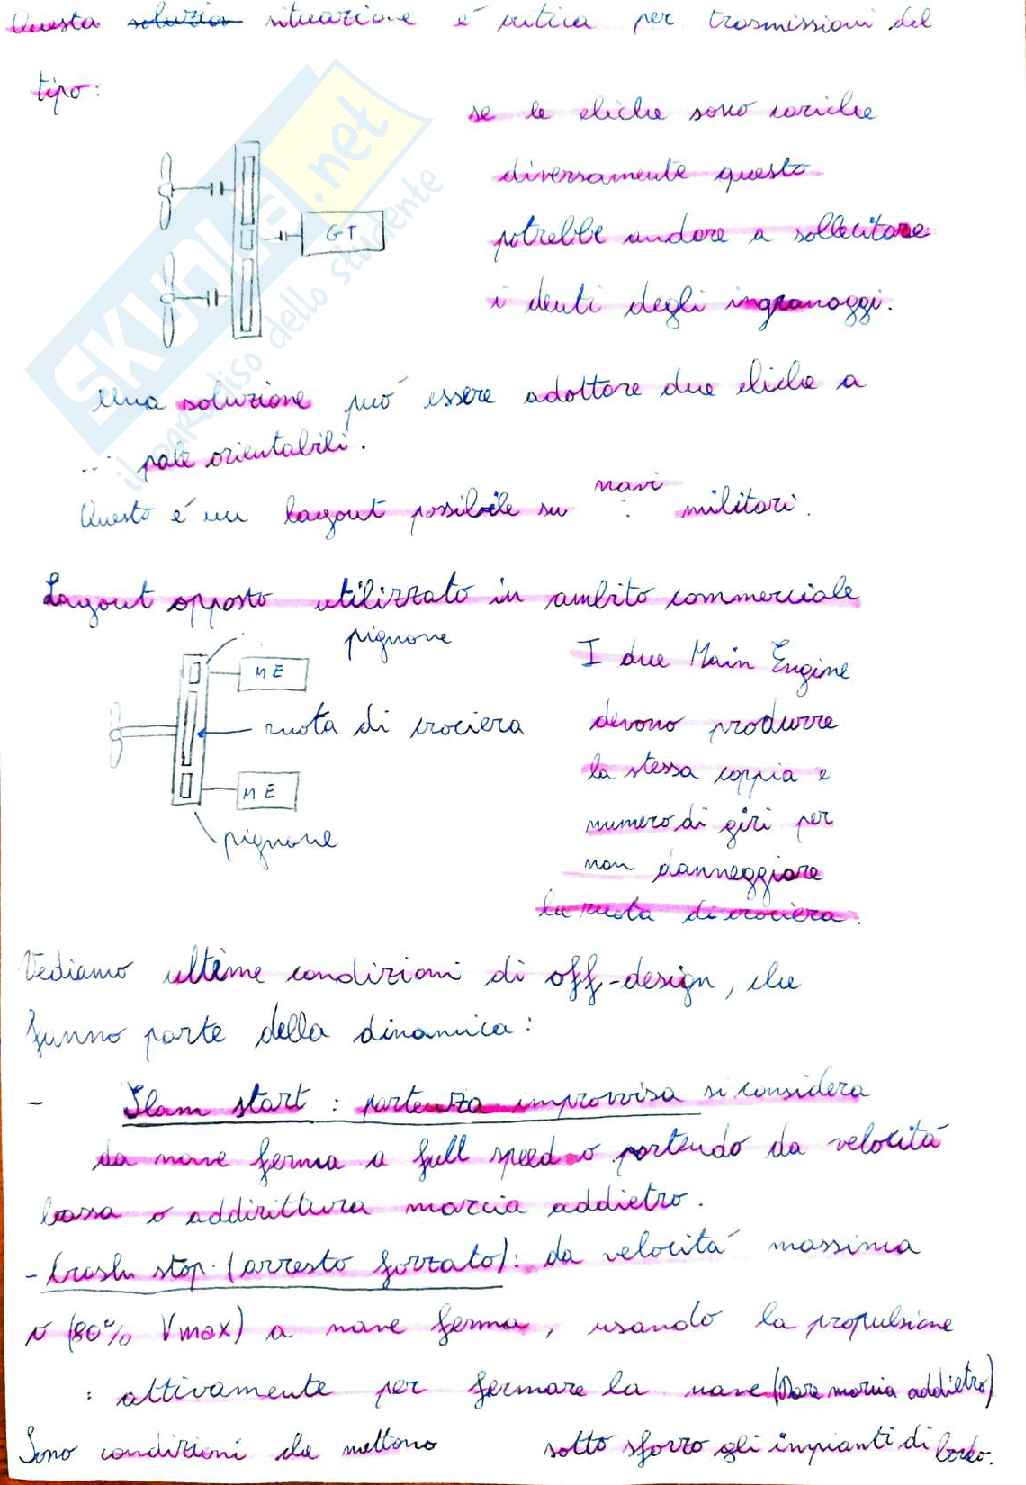 Questa soluzio situazione é critica per trasmissioni del
tipo:
se le eliche sono cariche
diversamente questo
potrebbe andare a sollecitare
i denti degli ingranaggi.
GT
SKUOLA.net
il paradiso dello studente
Una soluzione può essere adottare due eliche a
pale orientabili.
Questo é un layout possibile su navi militari.
Layout opposto utilizzato in ambito commerciale
pignone
ME
ruota di crociera
ME
pignone
I due Main Engine
devono produrre
la stessa coppia e
numero di giri per
non danneggiare
la ruota di crociera.
Vediamo ultime condizioni di off-design, che
fanno parte della dinamica:
- Slam start: partenza improvvisa si considera
da nave ferma a full speed o partendo da velocità
bassa o addirittura marcia addietro.
- Crash stop. (arresto forzato): da velocità massima
N (80% Vmax) a nave ferma, usando la propulsione
: attivamente per fermare la nave (Dare marcia addietro)
Sono condizioni che mettono sotto sforzo gli impianti di bordo.